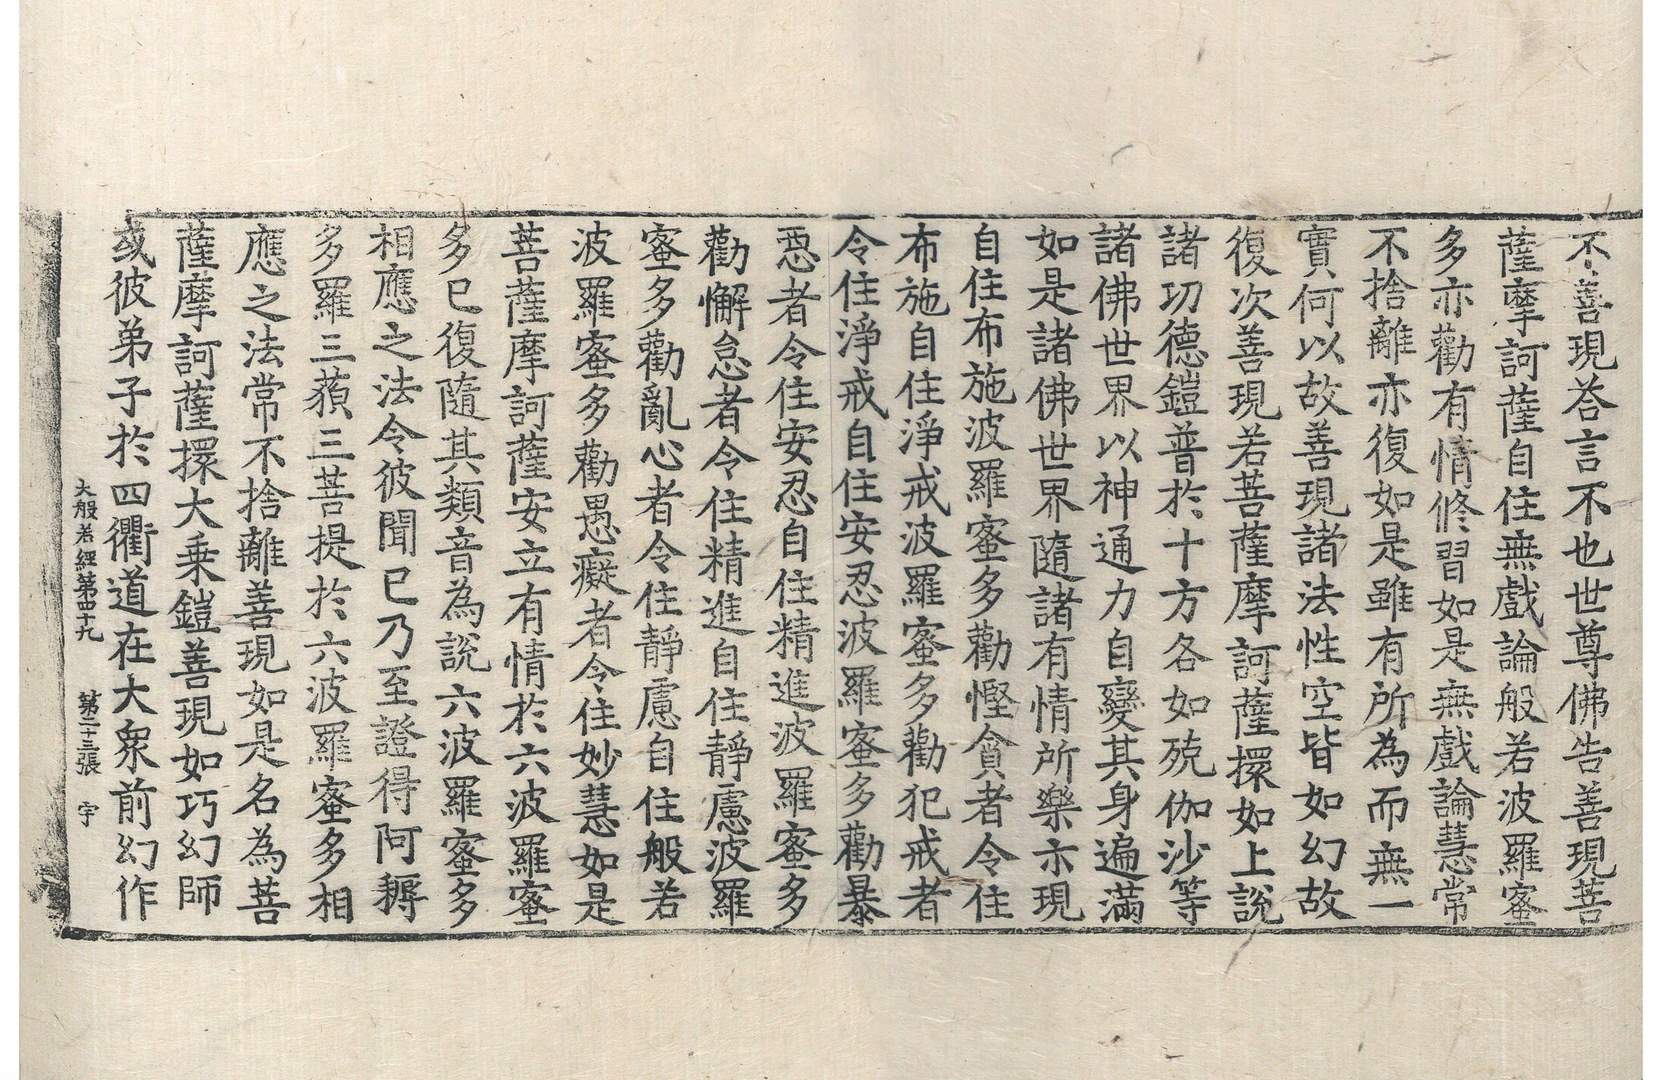 不善現荅言不也世尊佛告善現菩
薩摩訶薩自住無戲論般若波羅蜜
多亦勸有情修習如是無戲論慧常
不捨離亦復如是雖有所為而無一
實何以故善現諸法性空皆如幻故
復次善現若菩薩摩訶薩擐如上說
諸功德鎧普於十方各如殑伽沙等
諸佛世界以神通力自變其身遍滿
如是諸佛世界隨諸有情所樂亦現
自住布施波羅蜜多勸慳貪者令住
布施自住淨戒波羅蜜多勸犯戒者
令住淨戒自住安忍波羅蜜多勸暴
惡者令住安忍自住精進波羅蜜多
勸懈怠者令住精進自住靜慮波羅
蜜多勸亂心者令住靜慮自住般若
波羅蜜多勸愚癡者令住妙慧如是
菩薩摩訶薩安立有情於六波羅蜜
多已復隨其類音為說六波羅蜜多
相應之法令彼聞已乃至證得阿耨
多羅三藐三菩提於六波羅蜜多相
應之法常不捨離善現如是名為菩
薩摩訶薩擐大乘鎧善現如巧幻師
或彼弟子於四衢道在大衆前幻作
大般若經第四十九 第二十三張 宇